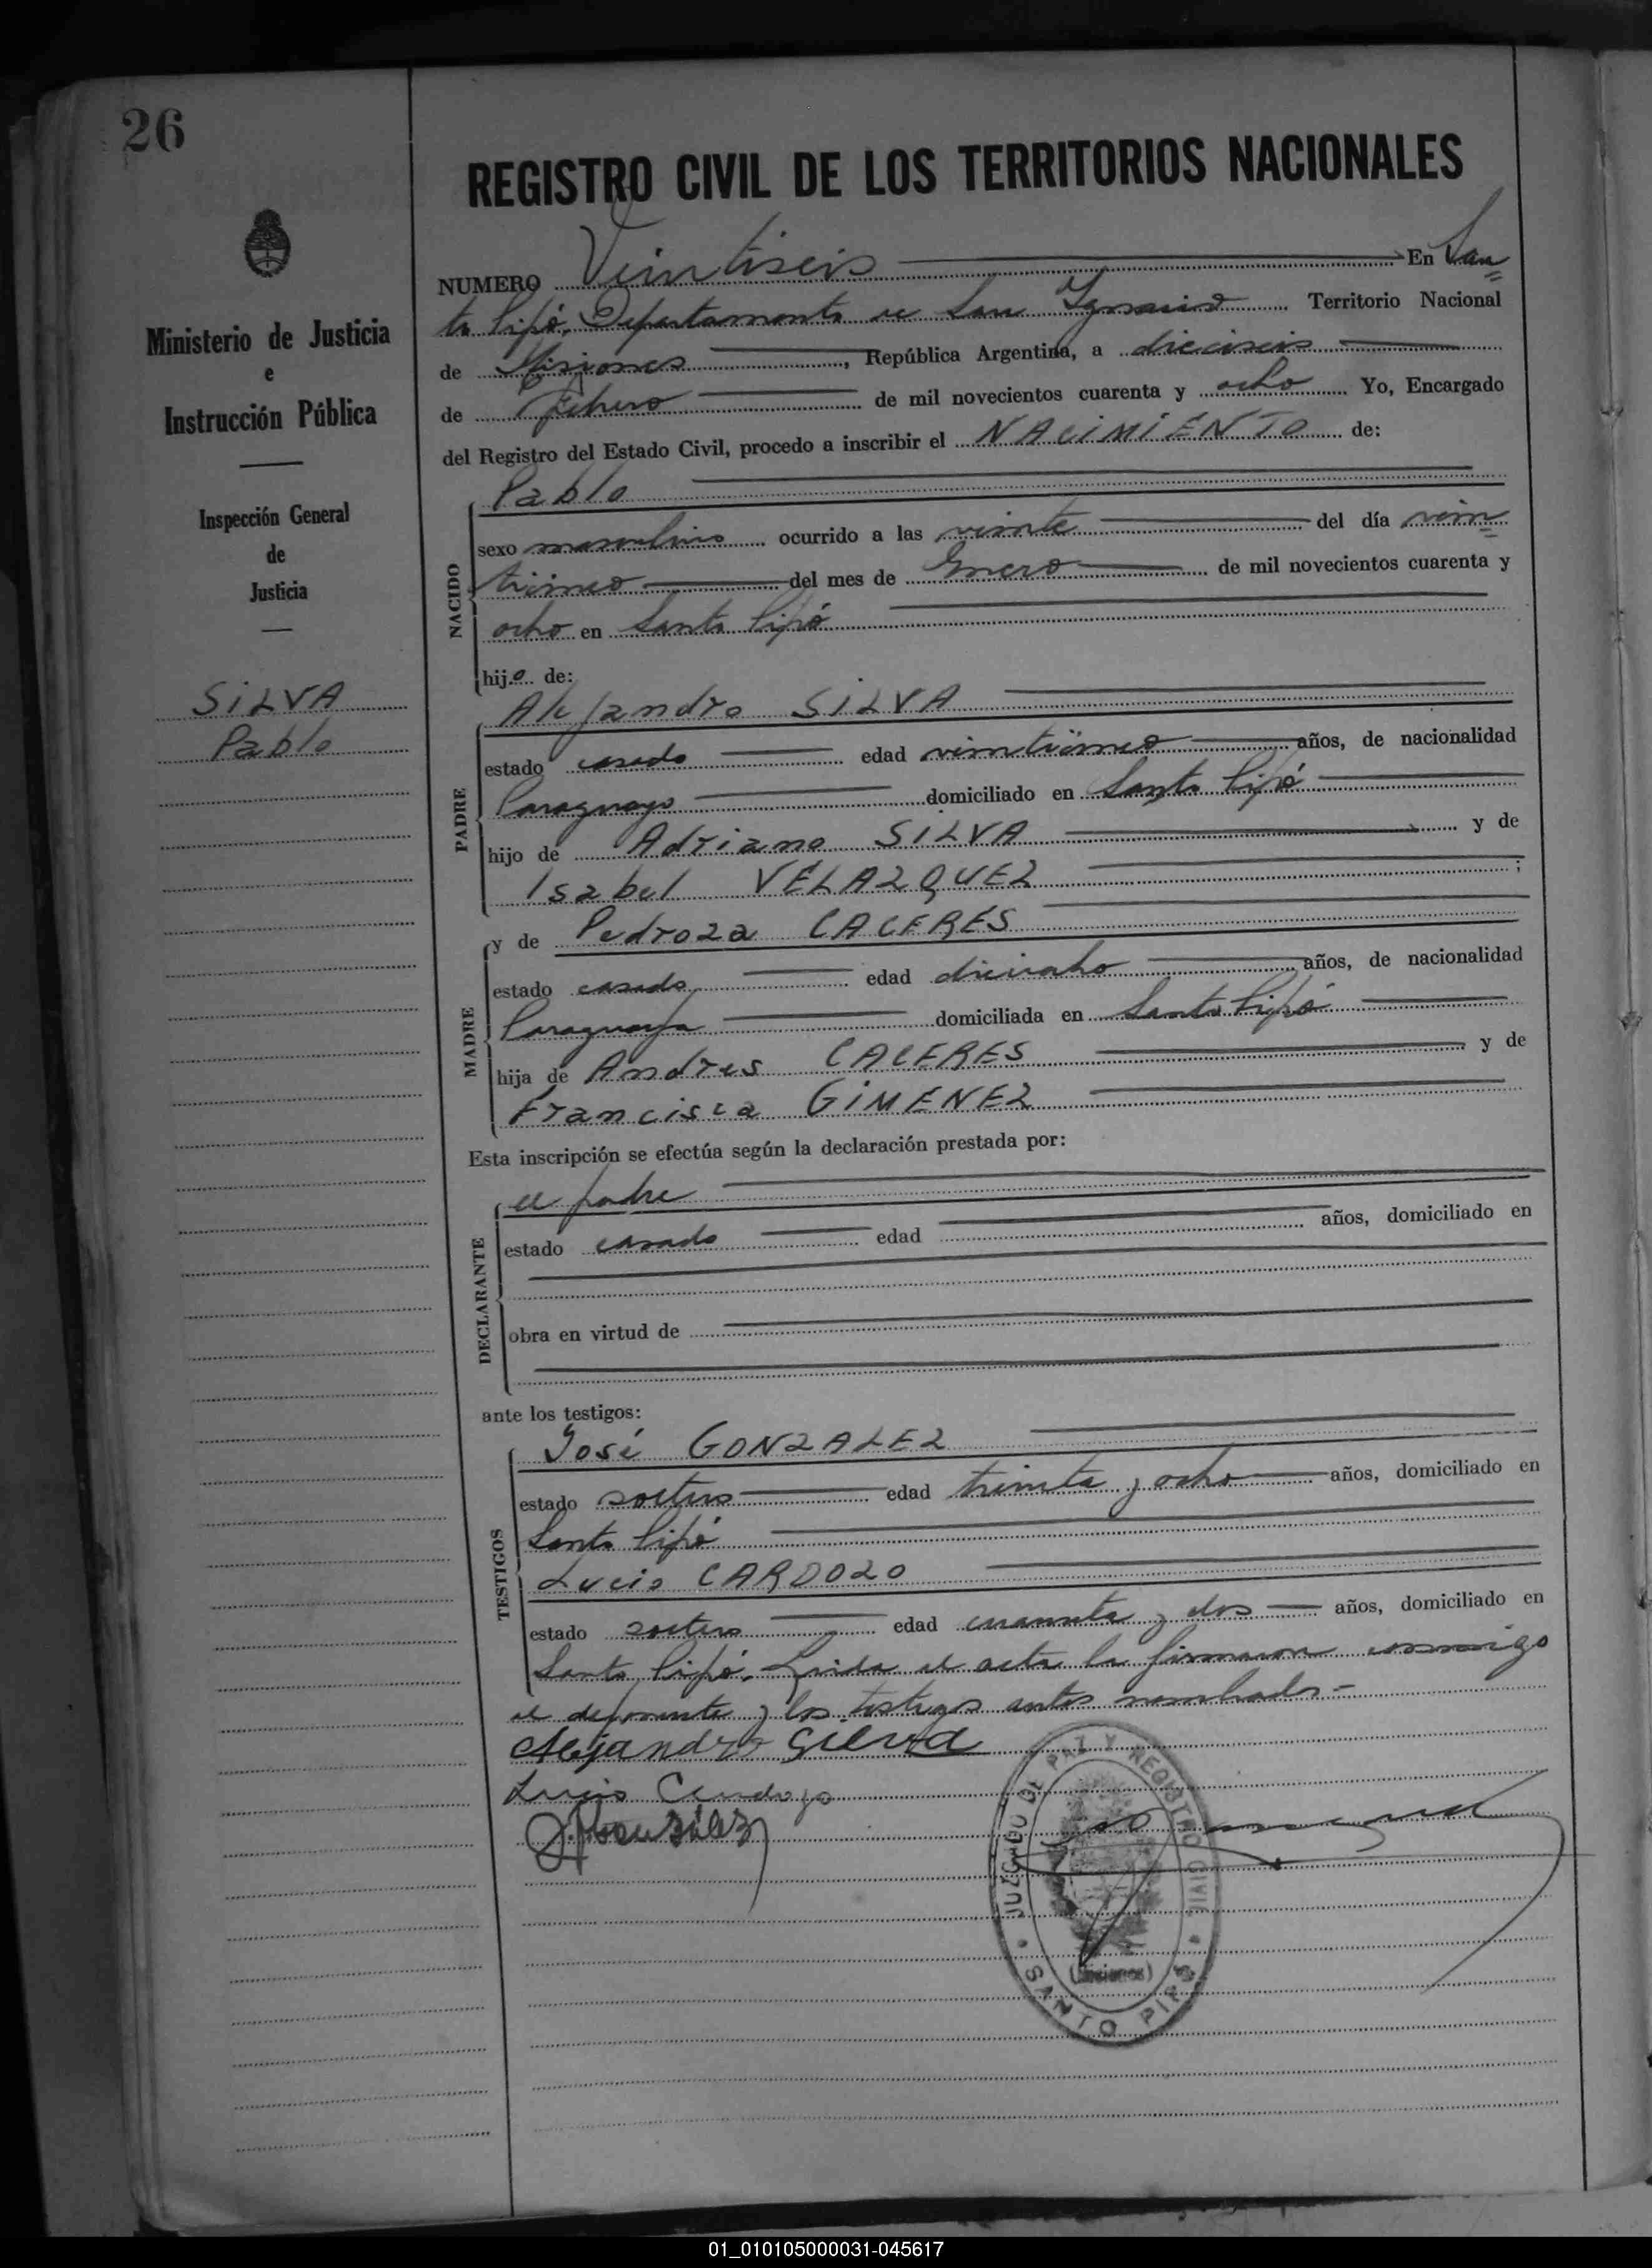 26
REGISTRO CIVIL DE LOS TERRITORIOS NACIONALES
Ministerio de Justicia
e
Instrucción Pública
Inspección General
de
Justicia
SILVA
Pablo
NUMERO Veintiseis En San=
to Pipó, Departamento de San Ignacio Territorio Nacional
de Misiones, República Argentina, a dieciseis
de Febrero de mil novecientos cuarenta y ocho Yo, Encargado
del Registro del Estado Civil, procedo a inscribir el NACIMIENTO de:
NACIDO
Pablo
sexo masculino ocurrido a las veinte del día vein=
ticinco del mes de Enero de mil novecientos cuarenta y
ocho en Santo Pipó
hijo de:
PADRE
Alejandro SILVA
estado casado edad veinticinco años, de nacionalidad
Paraguayo domiciliado en Santo Pipó
hijo de Adriano SILVA y de
Isabel VELAZQUEZ ;
MADRE
y de Pedroza CACERES
estado casada edad dieciocho años, de nacionalidad
Paraguaya domiciliada en Santo Pipó
hija de Andres CACERES y de
Francisca GIMENEZ
Esta inscripción se efectúa según la declaración prestada por:
DECLARANTE
el padre
estado casado edad años, domiciliado en
obra en virtud de
ante los testigos:
TESTIGOS
José GONZALEZ
estado soltero edad treinta y ocho años, domiciliado en
Santo Pipó
Lucio CARDOZO
estado soltero edad cuarenta y dos años, domiciliado en
Santo Pipó. Leida el acta la firmaron conmigo
el deponente y los testigos antes nombrados=
Alejandro Silva
Lucio Cardozo
J. Gonzalez
JUZGADO DE PAZ Y REGISTRO CIVIL
(Misiones)
SANTO PIPÓ
01_010105000031-045617